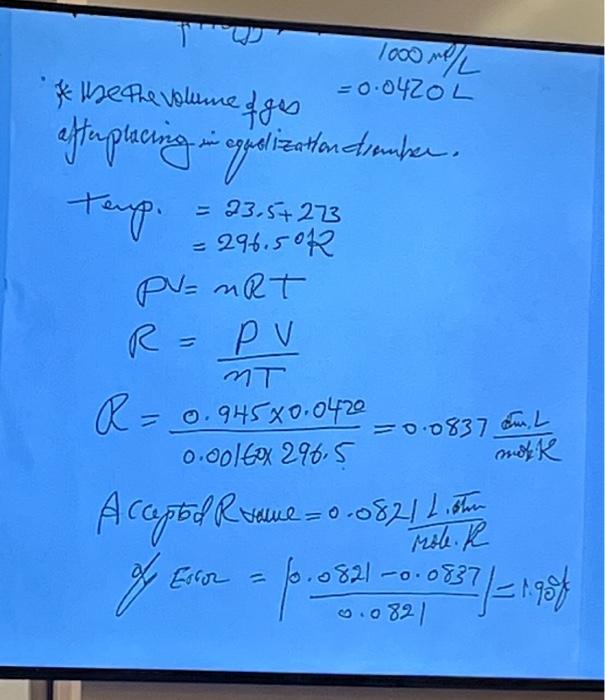 1000 ml/L
* Use the volume of gas = 0.0420 L
after placing in equalization chamber.
Temp. = 23.5 + 273
= 296.5 °K
PV = nRT
R = PV
nT
R = 0.945 x 0.0420 = 0.0837 atm. L
0.00160 x 296.5 mole K
Accepted R value = 0.0821 L. atm
Mole. K
% Error = |0.0821 - 0.0837| = 1.95%
0.0821